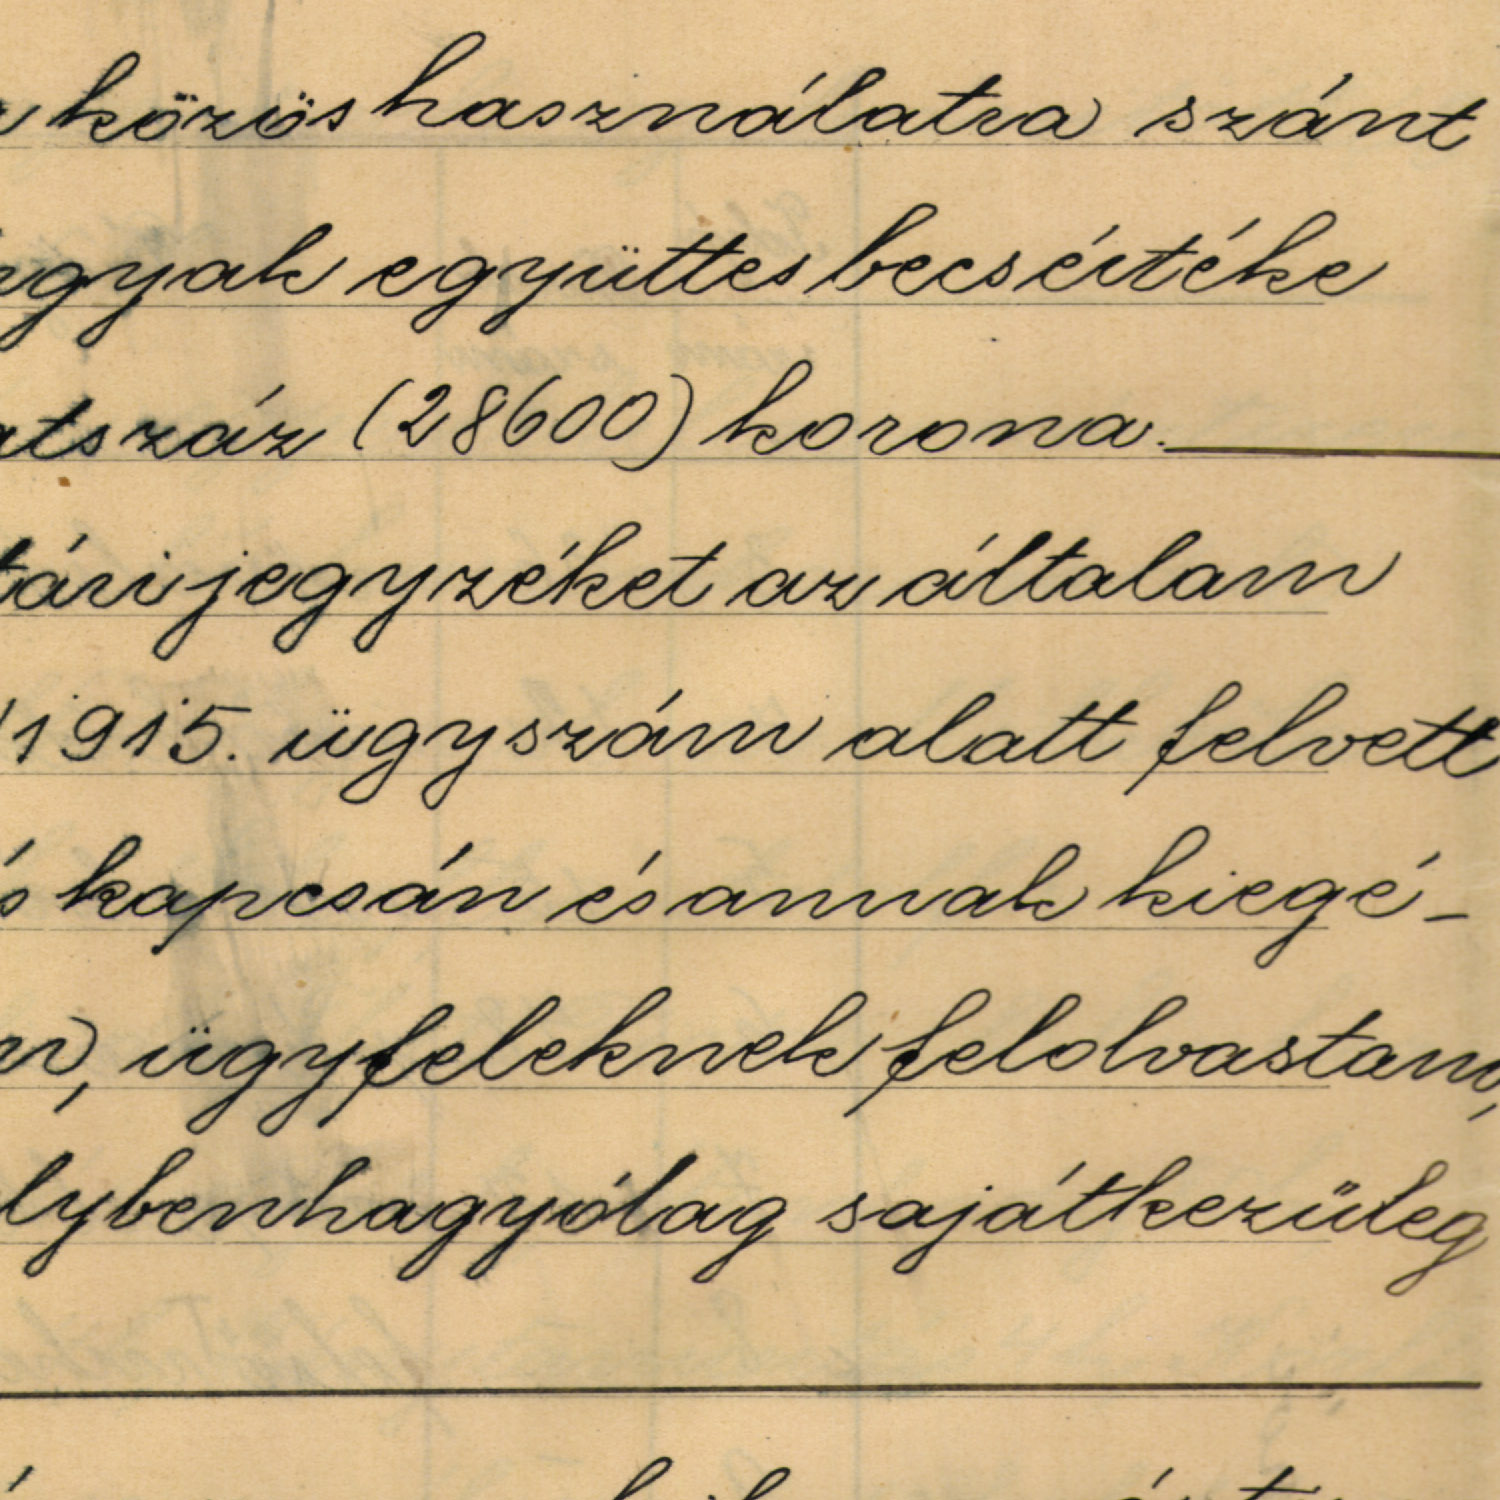 közös használatra szánt
együttes becsértéke
(28600) korona.
jegyzéket az általam
1915. ügyszám alatt felvett
kapcsán és annak kiegé-
ügyfeleknek felolvastam,
sajátkezüleg